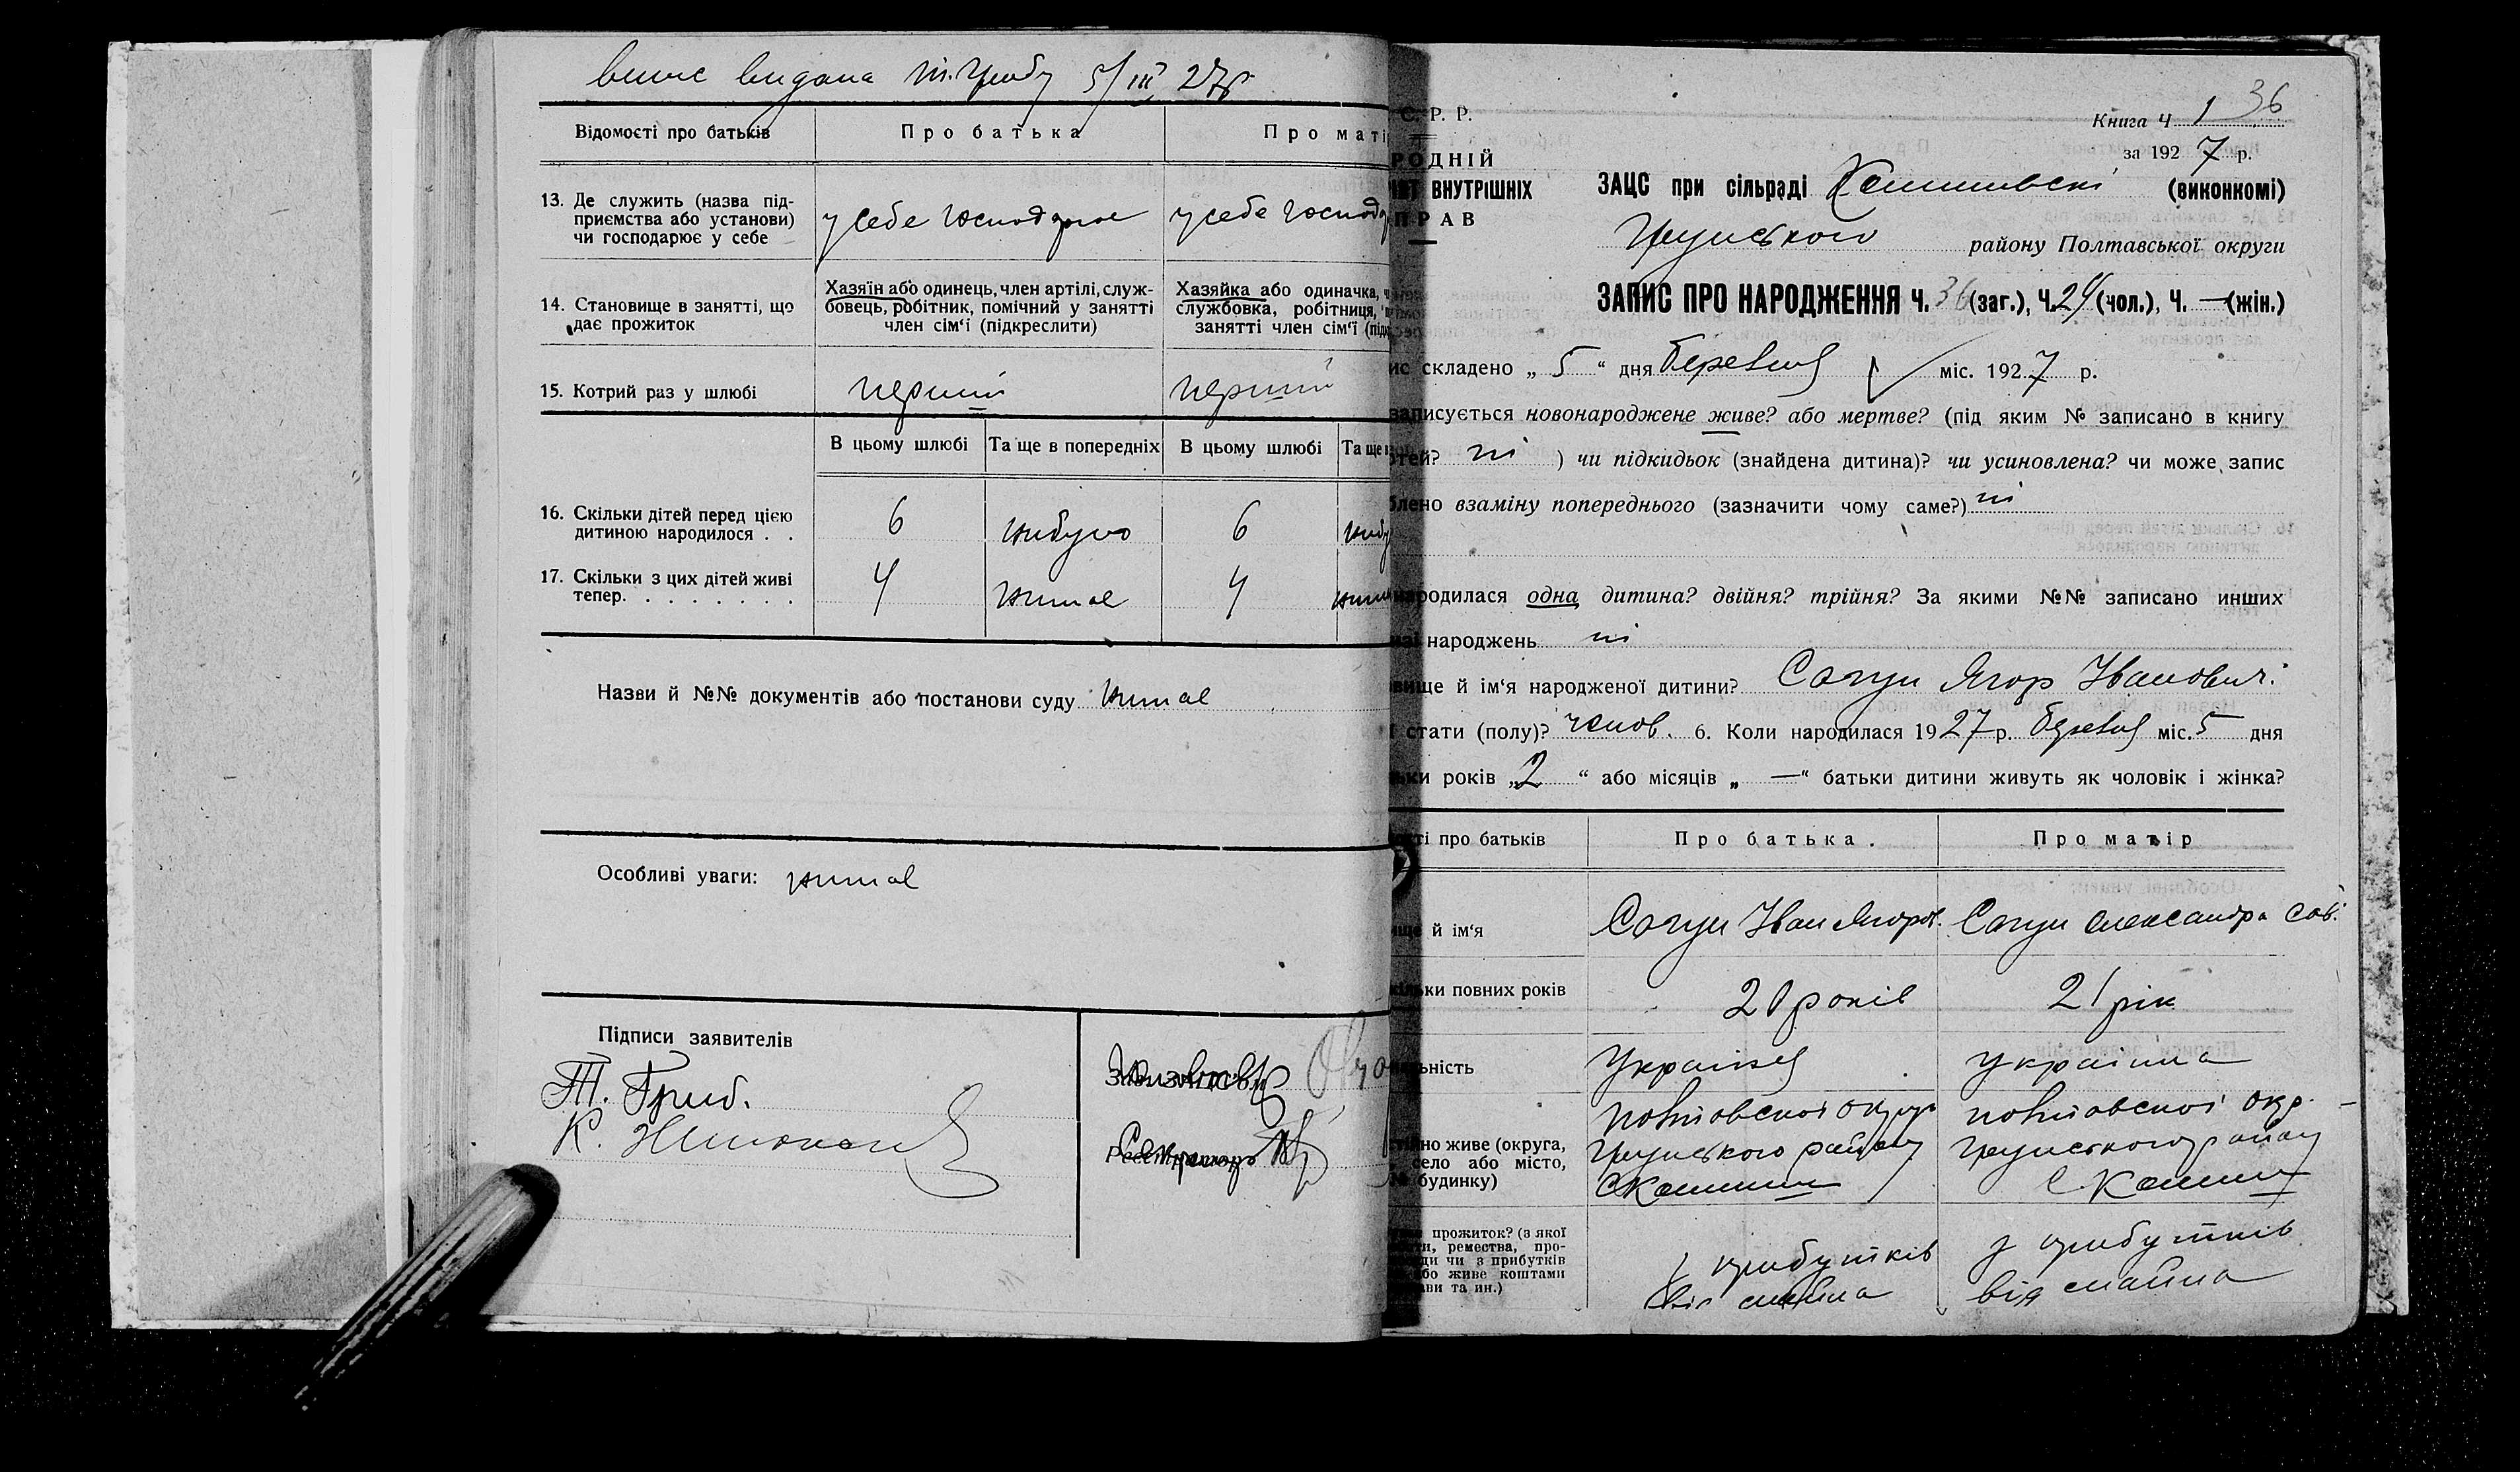 виис видана т. Грибу 5/III 27р
Відомості про батьків
Про батька
Про маті
13. Де служить (назва під-
приємства або установи)
чи господарює у себе
у себе господрює
у себе господ
14. Становище в занятті, що
дає прожиток
Хазяїн або одинець, член артілі, служ-
бовець, робітник, помічний у занятті
член сім'ї (підкреслити)
Хазяйка або одиначка,
службовка, робітниця,
занятті член сім'ї
15. Котрий раз у шлюбі
перший
перший
В цьому шлюбі
Та ще в попередніх
В цьому шлюбі
Та ще
16. Скільки дітей перед цією
дитиною народилося . .
6
небуло
6
17. Скільки з цих дітей живі
тепер. . . . . . . .
4
немає
4
Назви й №№ документів або постанови суду немає
Особливі уваги: немає
Підписи заявителів
Т. Гриб.
К.
Секретарь
С. Р. Р.
РОДНІЙ
ВНУТРІШНІХ
ПРАВ
Книга Ч 1 36
за 1927 р.
ЗАЦС при сільраді (виконкомі)
Грунського району Полтавської округи
ЗАПИС ПРО НАРОДЖЕННЯ Ч. 36 (заг.), Ч. 24 (чол.), Ч. — (жін.)
складено „ 5 “ дня березня міс. 1927 р.
записується новонароджене живе? або мертве? (під яким № записано в книгу
ні ) чи підкидьок (знайдена дитина)? чи усиновлена? чи може запис
взаміну попереднього (зазначити чому саме?) ні
народилася одна дитина? двійня? трійня? За якими №№ записано инших
народжень ні
й ім'я народженої дитини? Согун Ягор Іванович.
стати (полу)? чолов. 6. Коли народилася 1927 р. березня міс. 5 дня
років „2“ або місяців „—“ батьки дитини живуть як чоловік і жінка?
про батьків
Про батька.
Про матір
й ім'я
Согун Іван Ягоров.
Согун Олександра Сав.
повних років
20 років
21 рік
Українец
україіна
живе (округа,
село або місто,
будинку)
полтавскої округ
Грунського району
полтавскої окр.
Грунського району
прожиток? (з якої
ремества, про-
чи з прибутків
живе коштами
та ин.)
з прибутків
від майна
з прибутків
від майна